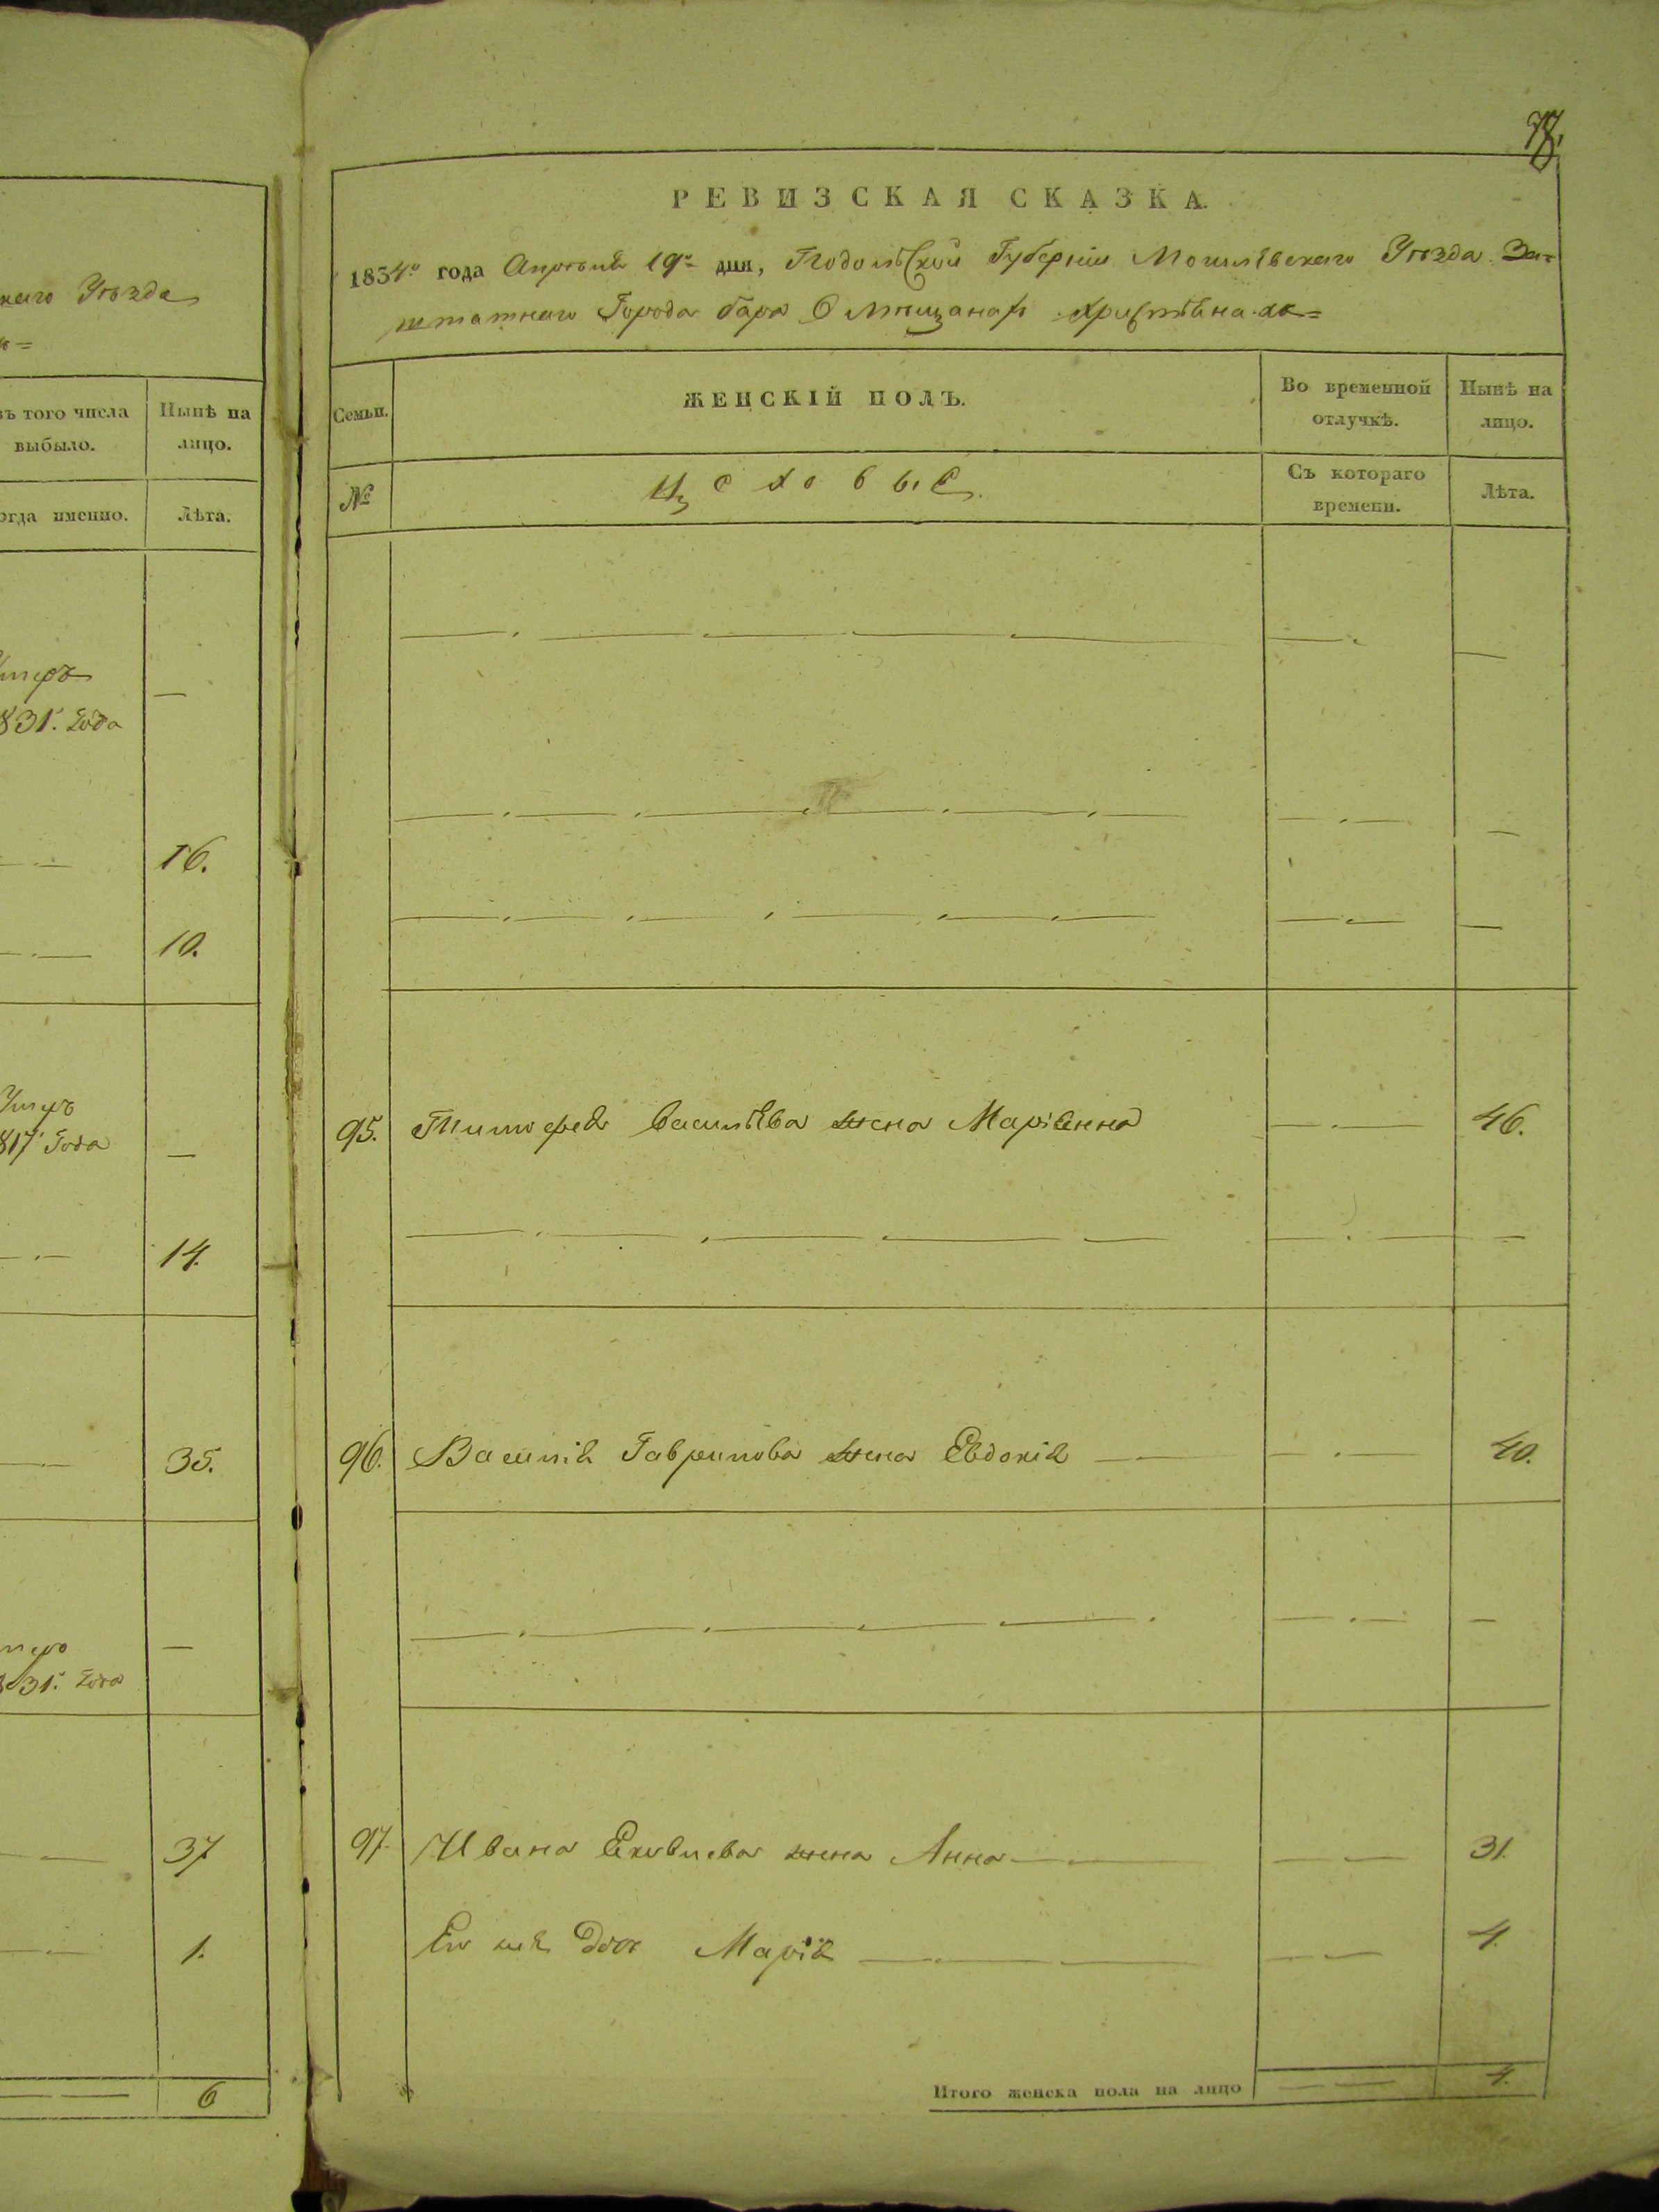 каго Уѣзда
зъ того числа
выбыло.
Нынѣ на
лицо.
огда именно.
Лѣта.
Умеръ
831. Года
16.
10.
Умеръ
817 Года
14.
35.
меръ
831. Года
37
1.
6
78.
РЕВИЗСКАЯ СКАЗКА.
1834го года Апрѣля 19го дня, Подольской Губерніи Могилевскаго Уѣзда За=
штатнаго Города Бара О мѣщанахъ Христіанахъ=
Семьи.
ЖЕНСКІЙ ПОЛЪ.
Во временной
отлучкѣ.
Нынѣ на
лицо.
№
Цеховые
Съ котораго
времени.
Лѣта.
95. Тимофея Васильева жена Маріанна 46.
96. Василія Гаврилова жена Евдокія 40.
97. Ивана жена Анна 31.
Его же Дочь Марія 4.
Итого женска пола на лицо 4.